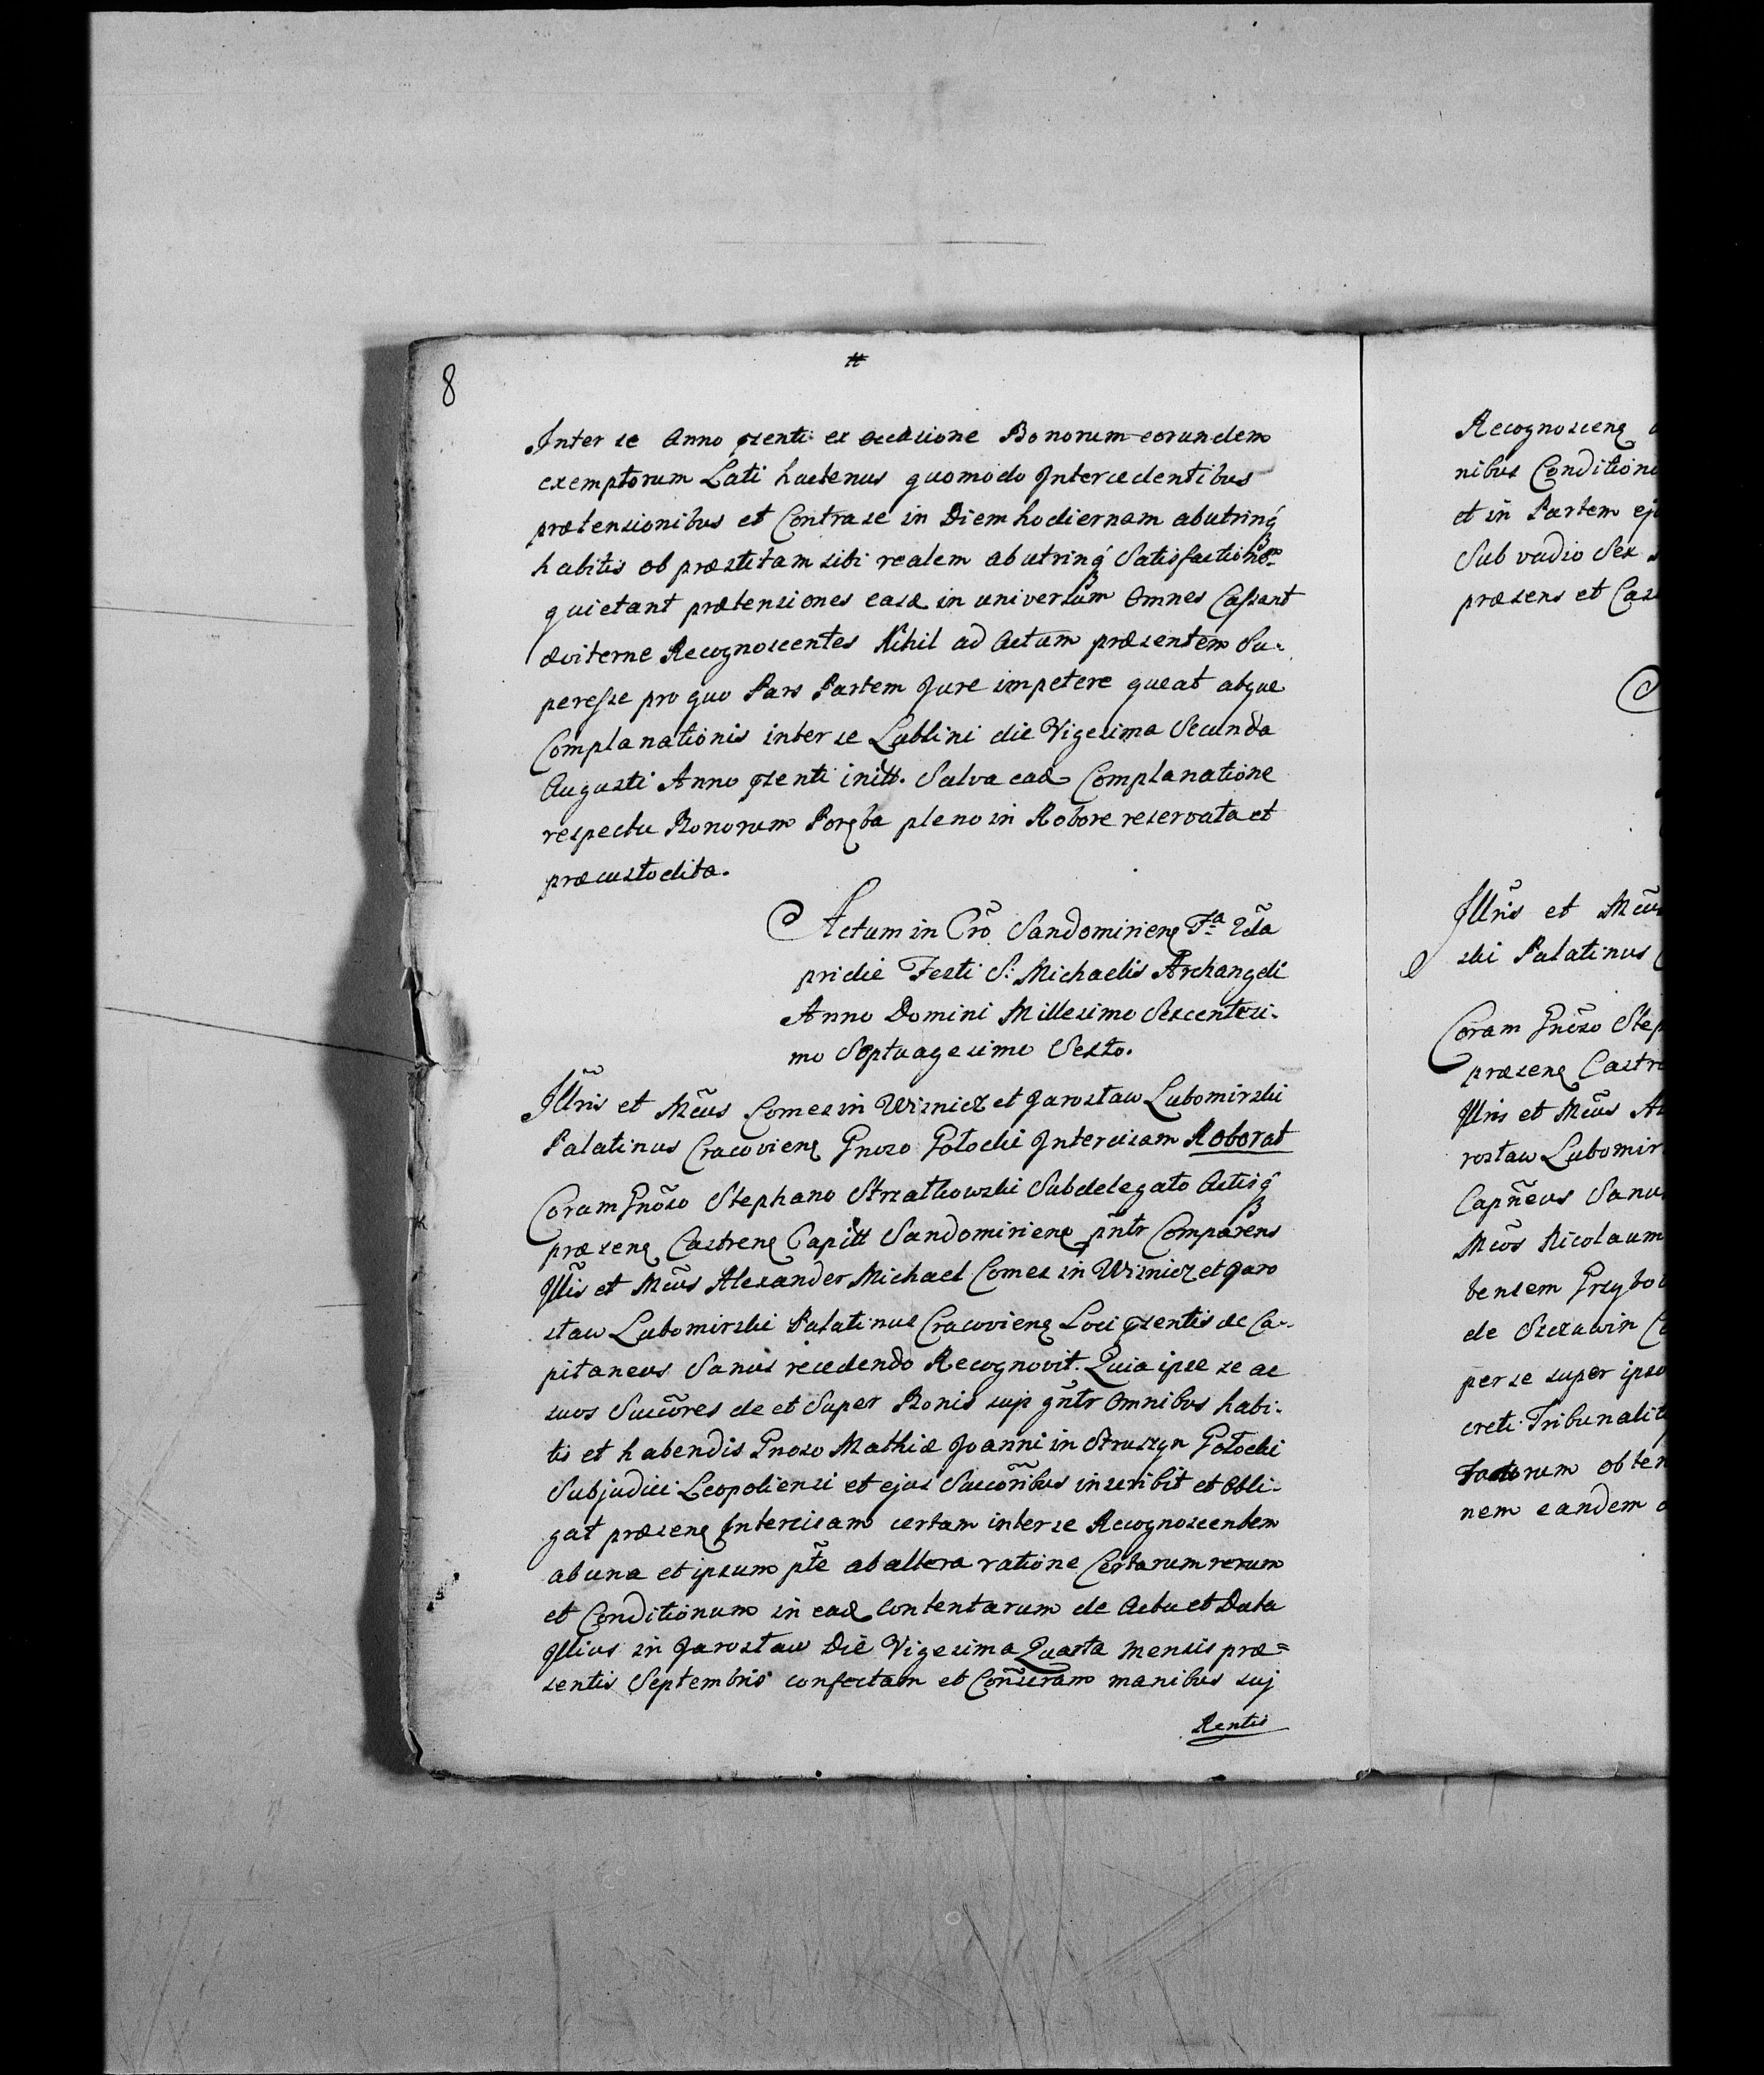 8
Inter se Anno præsenti ex occasione Bonorum eorundem
exemptorum Lati hactenus quomodo Intercedentibus
prætensionibus et Contra se in Diem hodiernam abutrinq́
habitis ob præstitam sibi realem abutrinq́ Satisfactionē
quietant prætensiones easq́ in universum Omnes Cassant
æviterne Recognoscentes Nihil ad Actum præsentem Su-
peresse pro quo Pars Partem Jure impetere queat atque
Complanationis inter se Lublini die Vigesima Secunda
Augusti Anno præsenti initt. Salva ead Complanatione
respectu Bonorum Poręba pleno in Robore reservata et
præcustodita.
Actum in Crō Sandomirien Fa 2da
pridie Festi S: Michaelis Archangeli
Anno Domini Millesimo Sexcentesi-
mo Septuagesimo Sexto.
Jllris et Mcus Comes in Wisnicz et Jarosław Lubomirski
Palatinus Cracovien Gnoso Gołocki Intercisam Roborat
Coram Gnōso Stephano Strzałkowski Subdelegato Actisq́
præsen Castren Capitt Sandomirien pn̄tr Comparens
Jllis et Mcūs Alexander Michael Comes in Wisnicz et Jaro
sław Lubomirski Palatinus Cracovien Loci præsentis de Ca-
pitaneus Sanus recedendo Recognovit. Quia ipse se ac
suos Succōres de et Super Bonis suis gn̄tr Omnibus habi-
tis et habendis Gnoso Mathiæ Joanni in Struszyn Gołocki
Subjudici Leopoliensi et ejus Succōribus inscribit et Obli-
gat præsen Intercisam certam inter se Recognoscentem
ab una et ipsum pt̄e ab altera ratione Certarum rerum
et Conditionum in ead contentarum de Actu et Data
Jllius in Jarosław Die Vigesima Quarta mensis præ=
sentis Septembris confectam et Con̄scram manibus suj
Rentis
Recognoscen
nibus Conditioni
et in Partem ej
Sub vadio Sex
præsens et Cas
Jllris et Mcūs
ski Palatinus
Coram Gnōso Step
præsen Castre
Jllris et Mcūs Al
rosław Lubomir
Capn̄eus Sanu
Mcōs Nicolaum
bensem Grzybo
de Szczawin
per se super ipso
creti Tribunalit
Factorum obten
nem eandem